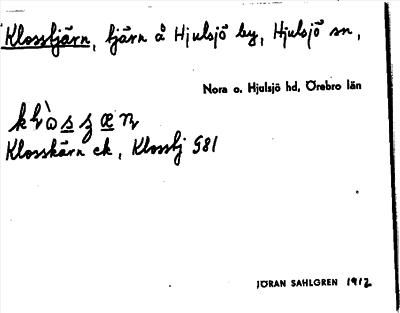 Klosstjärn, tjärn å Hjulsjö by, Hjulsjö sn,
Nora o. Hjulsjö hd, Örebro län
Klosskärn ek, Klosstj 581
JÖRAN SAHLGREN 1912